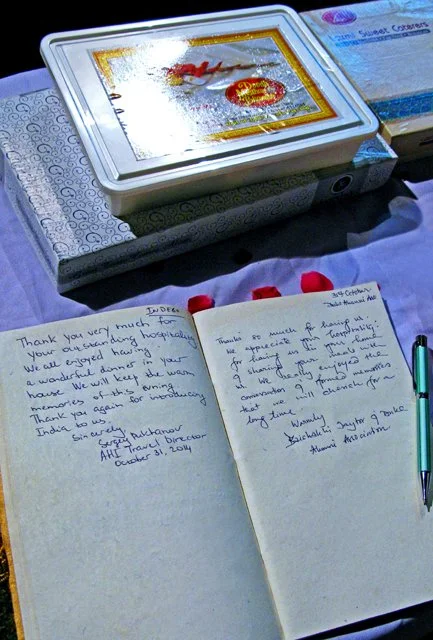 Sweet Caterers
Thank you very much for
your outstanding hospitality
We all enjoyed having
a wonderful dinner in your
house. We will keep the warm
memories of this evening
Thank you again for introducing
India to us.
Sincerely,
Sergey
AHI Travel Director
October 31, 2014
31st October
Duke Alumni Assc
Thanks so much for having us.
We appreciate your hospitality
for having us in your home
& sharing your meals with
us. We really enjoyed the
conversation & formed memories
that we will cherish for a
long time.
Warmly
Taylor & Duke
Alumni Association